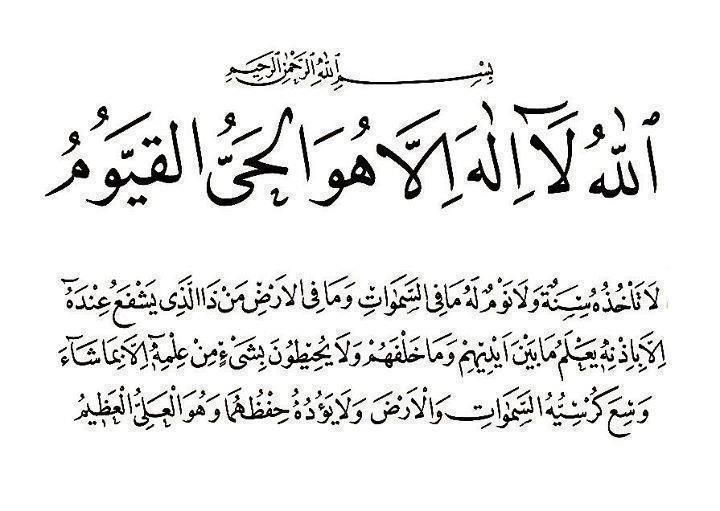 بِسْمِ اللهِ الرَّحْمٰنِ الرَّحِيمِ
اَللّٰهُ لَآ اِلٰهَ اِلَّا هُوَ الْحَيُّ الْقَيُّومُ
لَا تَأْخُذُهُ سِنَةٌ وَلَا نَوْمٌ لَهُ مَا فِي السَّمٰوَاتِ وَمَا فِي الْاَرْضِ مَنْ ذَا الَّذِي يَشْفَعُ عِنْدَهُٓ
اِلَّا بِاِذْنِهِ يَعْلَمُ مَا بَيْنَ اَيْدِيهِمْ وَمَا خَلْفَهُمْ وَلَا يُحِيطُونَ بِشَيْءٍ مِنْ عِلْمِهِٓ اِلَّا بِمَا شَٓاءَ
وَسِعَ كُرْسِيُّهُ السَّمٰوَاتِ وَالْاَرْضَ وَلَا يَؤُدُهُ حِفْظُهُمَا وَهُوَ الْعَلِيُّ الْعَظِيمُ